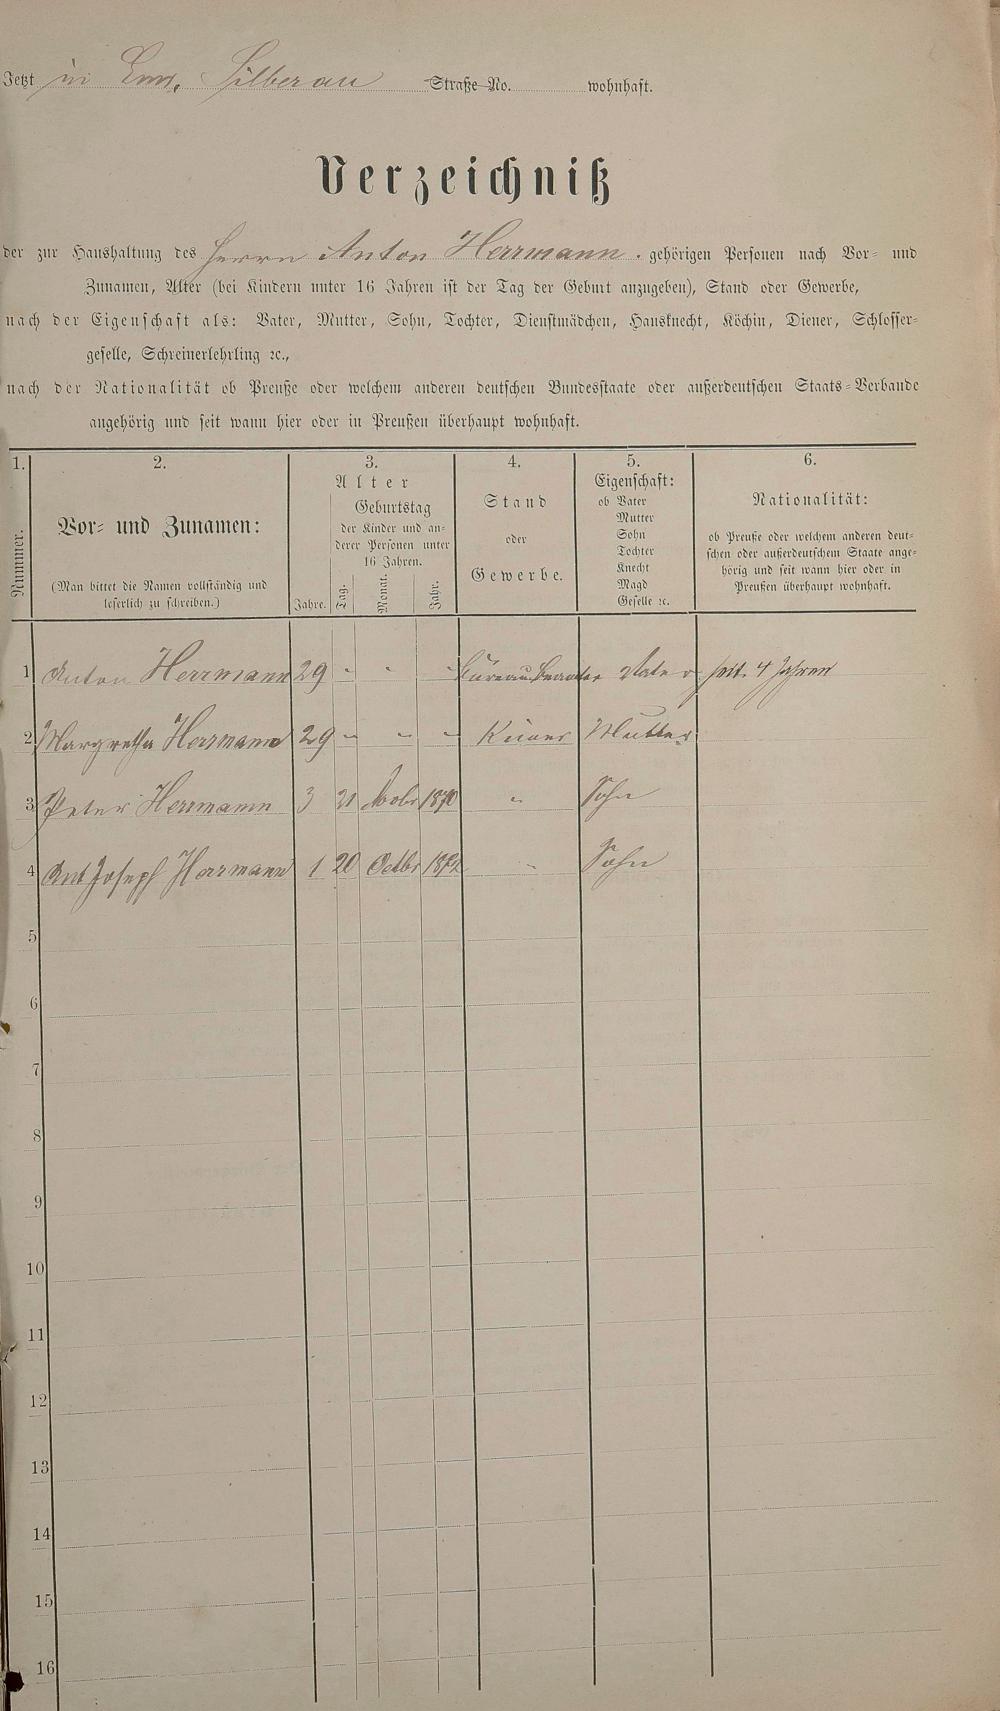 Jetzt in Ems, Silberau Straße No. wohnhaft.
Verzeichniß
der zur Haushaltung des Herrn Anton Herrmann. gehörigen Personen nach Vor- und
Zunamen, Alter (bei Kindern unter 16 Jahren ist der Tag der Geburt anzugeben), Stand oder Gewerbe,
nach der Eigenschaft als: Vater, Mutter, Sohn, Tochter, Dienstmädchen, Hausknecht, Köchin, Diener, Schlosser-
geselle, Schreinerlehrling ꝛc.,
nach der Nationalität ob Preuße oder welchem anderen deutschen Bundesstaate oder außerdeutschen Staats-Verbande
angehörig und seit wann hier oder in Preußen überhaupt wohnhaft.
1. 2. 3. 4. 5. 6.
Nummer.
Vor- und Zunamen:
(Man bittet die Namen vollständig und
leserlich zu schreiben.)
Alter
Jahre.
Geburtstag
der Kinder und an-
derer Personen unter
16 Jahren.
Tag. Monat. Jahr.
Stand
oder
Gewerbe.
Eigenschaft:
ob Vater
Mutter
Sohn
Tochter
Knecht
Magd
Geselle ꝛc.
Nationalität:
ob Preuße oder welchem anderen deut-
schen oder außerdeutschem Staate ange-
hörig und seit wann hier oder in
Preußen überhaupt wohnhaft.
1 Anton Herrmann 29 " " " Büreau Beamter Vater seit 4 Jahren
2 Margretha Herrmann 29 " " " Mutter
3 Peter Herrmann 3 21 1870 " Sohn
4 Ant Joseph Herrmann 1 20 Octbr 1872 " Sohn
5
6
7
8
9
10
11
12
13
14
15
16